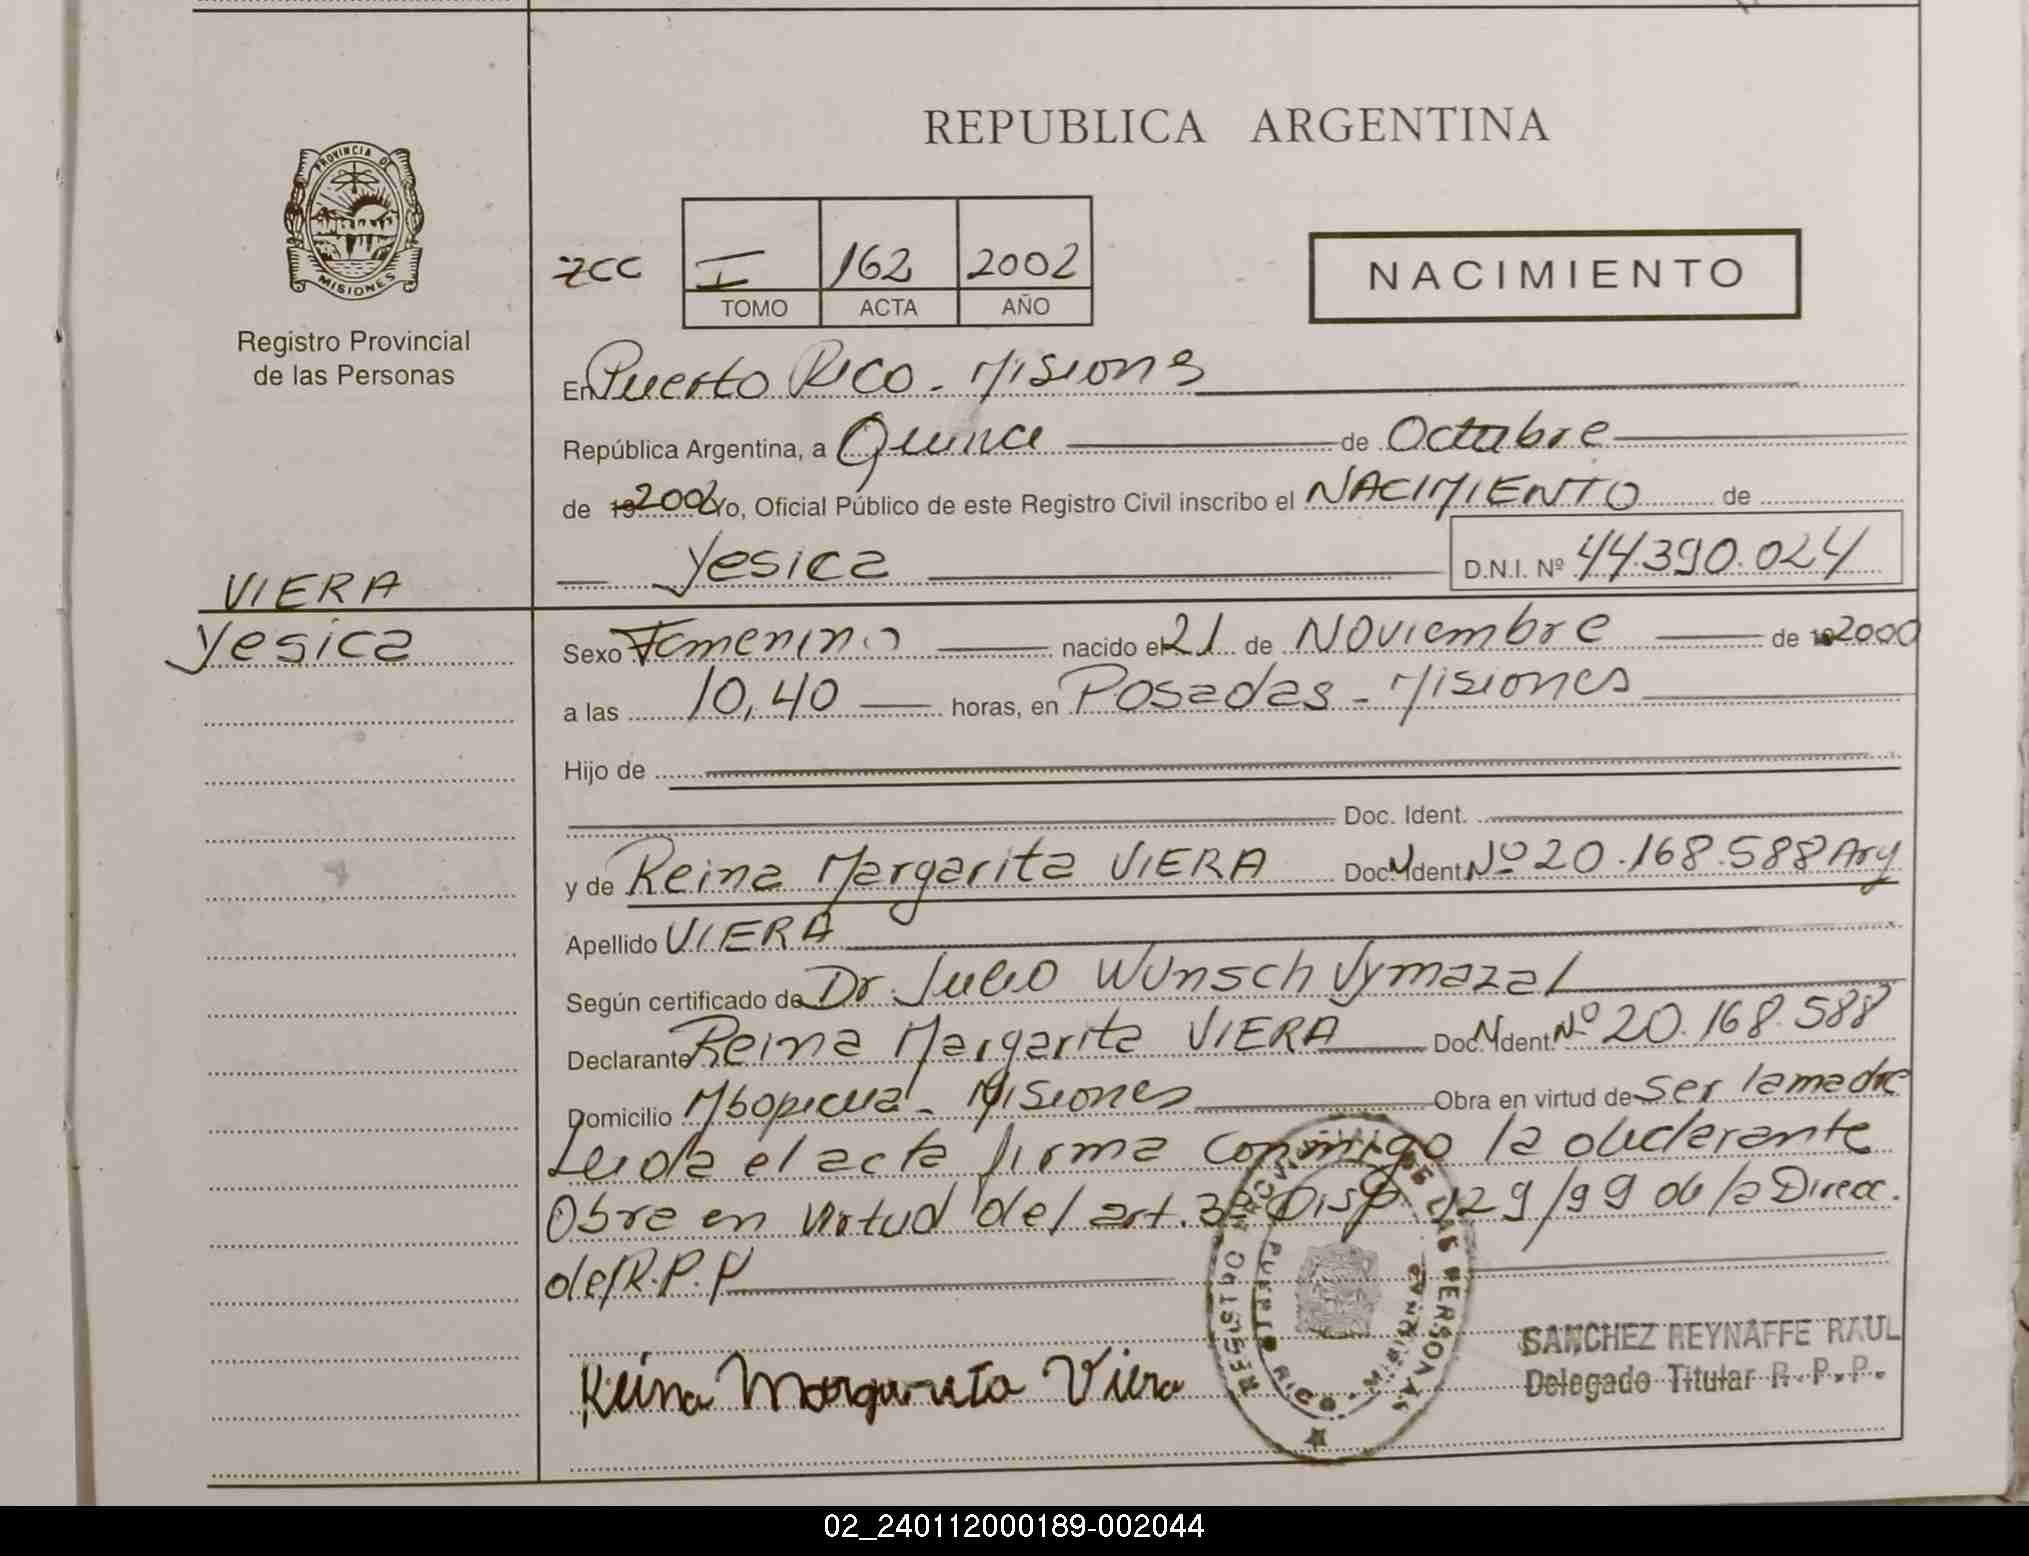 REPUBLICA ARGENTINA
PROVINCIA DE
MISIONES
Registro Provincial
de las Personas
zcc I 162 2002
TOMO ACTA AÑO
NACIMIENTO
En Puerto Rico - Misions
República Argentina, a Quince de Octubre
de 19 2002 Yo, Oficial Público de este Registro Civil inscribo el NACIMIENTO de
Yesica D.N.I. Nº 44.390.024
VIERA
Yesica
Sexo Femenino nacido el 21 de Noviembre de 19 2000
a las 10,40 horas, en Posadas - Misiones
Hijo de
Doc. Ident.
y de Reina Margarita VIERA Doc. Ident. Nº 20.168.588 Arg
Apellido VIERA
Según certificado de Dr. Julio Wunsch Vymazal
Declarante Reina Margarita VIERA Doc. Ident. Nº 20.168.588
Domicilio Mbopicua - Misiones Obra en virtud de ser la madre
Leida el acta firma conmigo la declarante
Obra en virtud del art. 3º Disp. 129/99 de la Direcc.
del R.P.P
REGISTRO PROVINCIAL DE LAS PERSONAS
PUERTO RICO - MISIONES
Reina Margarita Viera
SANCHEZ REYNAFFE RAUL
Delegado Titular R.P.P.
02_240112000189-002044